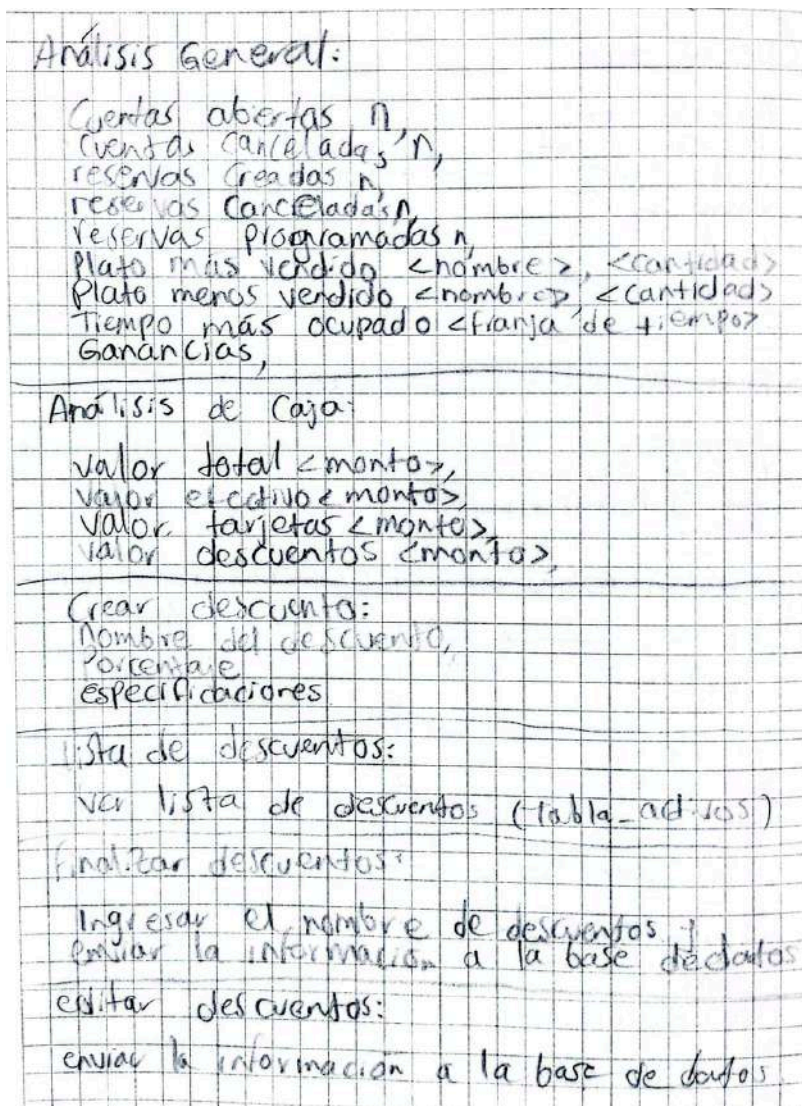 Análisis General:
Cuentas abiertas n,
Cuentas Canceladas n,
reservas Creadas n,
reservas Canceladas n,
reservas programadas n,
Plato más vendido <nombre>, <cantidad>
Plato menos vendido <nombre>, <cantidad>
Tiempo más ocupado <franja de tiempo>
Ganancias,
Análisis de Caja:
valor total <monto>,
valor efectivo <monto>,
valor tarjetas <monto>,
valor descuentos <monto>,
Crear descuento:
nombre del descuento,
Porcentaje
especificaciones
lista de descuentos:
ver lista de descuentos (tabla_activos)
Finalizar descuentos:
Ingresar el nombre de descuentos y
enviar la información a la base de datos
editar descuentos:
enviar la información a la base de datos.